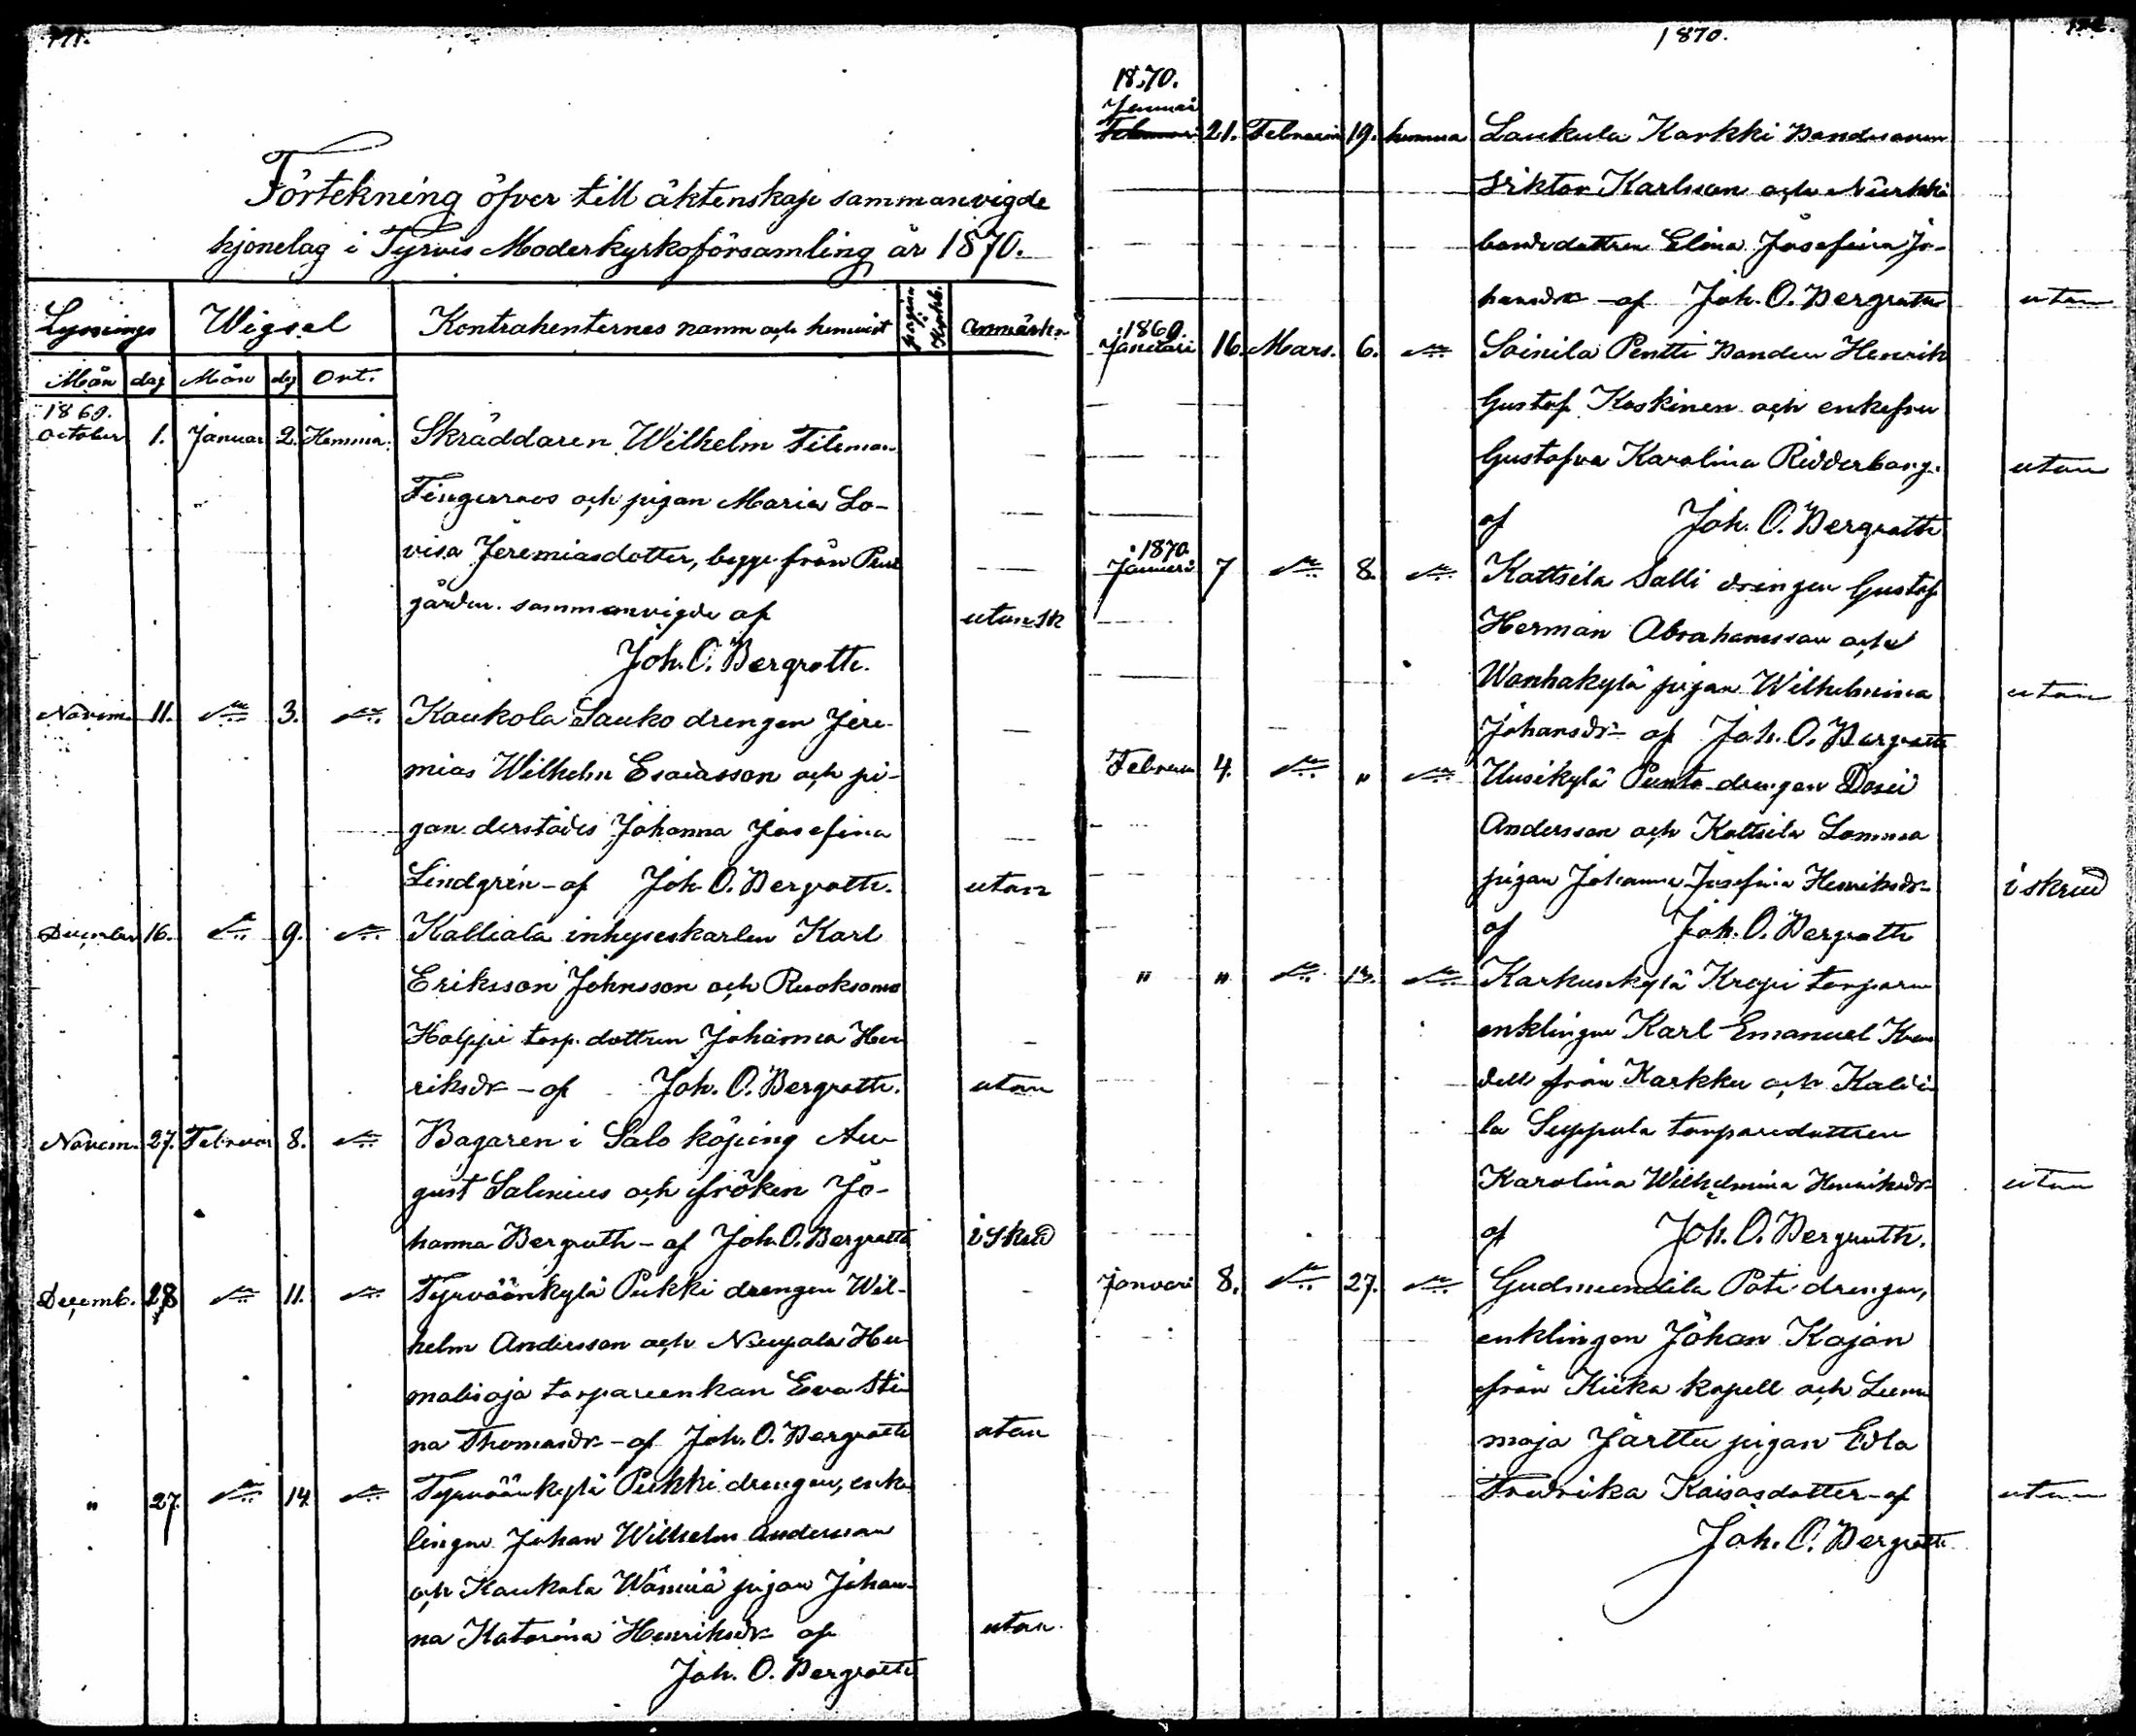 171.
Förtekning öfver till äktenskap sammanvigde
hjonelag i Tyrvis Moderkyrkoförsamling år 1870.
Lysnings Wigsel Kontrahenternes namn och hemvist pagina i Kyrkb. Anmärkn
Mån dag Mån dag Ort.
1869.
October 1. Januar 2. Hemma. Skräddaren Wilhelm Fileman
Fingerroos och pigan Maria Lo-
visa Jeremiasdotter, begge från
gården. sammanvigde af utan sk
Joh. O. Bergroth.
Novem. 11. 3. Kaukola Sauko drengen Jere-
mias Wilhelm Esaiasson och pi-
gan derstädes Johanna Josefina
Lindgrén - af Joh. O. Bergroth. utan
December 16. 9. Kalliala inhyseskarlen Karl
Eriksson Johnsson och Ruoksama
Holppi torp. dottren Johanna Hen
riksdr - af Joh. O. Bergroth. utan
Novem. 27. Februar 8. Bagaren i Salo köping Au-
gust Salenius och fröken Jo-
hanna Bergroth - af Joh. O. Bergroth i skrud
Decemb. 28 11. Tyrväänkylä Pukki drengen Wil-
helm Andersson och Nuupala Hu
maloja torpareenkan Eva Sti
na Thomasdr - af Joh. O. Bergroth utan
" 27. 14. Tyrväänkylä Pukki drengen, enk
lingen Johan Wilhelm Andersson
och Kaukola Wänniä pigan Johan-
na Katarina Henriksdr af utan.
Joh. O. Bergroth
1870. 172.
1870.
Januari
21. Februari 19. hemma Laukula Karkki bondesonen
Viktor Karlsson och Nurkki
bondedottren Elina Josefina Jo-
hansdr - af Joh. O. Bergroth utan
1869.
Januari 16. Mars. 6. Soinila Pentti bonden Henrik
Gustaf Koskinen och enkefru
Gustafva Karolina Ridderborg. utan
af Joh. O. Bergroth
1870.
Januari 7 8. Kattsila Salli drengen Gustaf
Herman Abrahamsson och
Wanhakylä pigan Wilhelmina utan
Johansdr - af Joh. O. Bergroth
Februari 4. " Uusikylä Punto drengen
Andersson och Kattsila Lomma
pigan Johanna Josefina Henriksdr i skrud
af Joh. O. Bergroth
" " 13. Karkunkylä Krepi torparen
enklingen Karl Emanuel
dell från Karkku och Kaldi
la Seppula torparedottren
Karolina Wilhelmina Henriksdr utan
af Joh. O. Bergroth.
Januari 8. 27. Gudmundila Pati drengen,
enklingen Johan Kajan
från Kiika kapell och Lum
maja Järttu pigan Edla
Fredrika Kaisasdotter - af utan
Joh. O. Bergroth